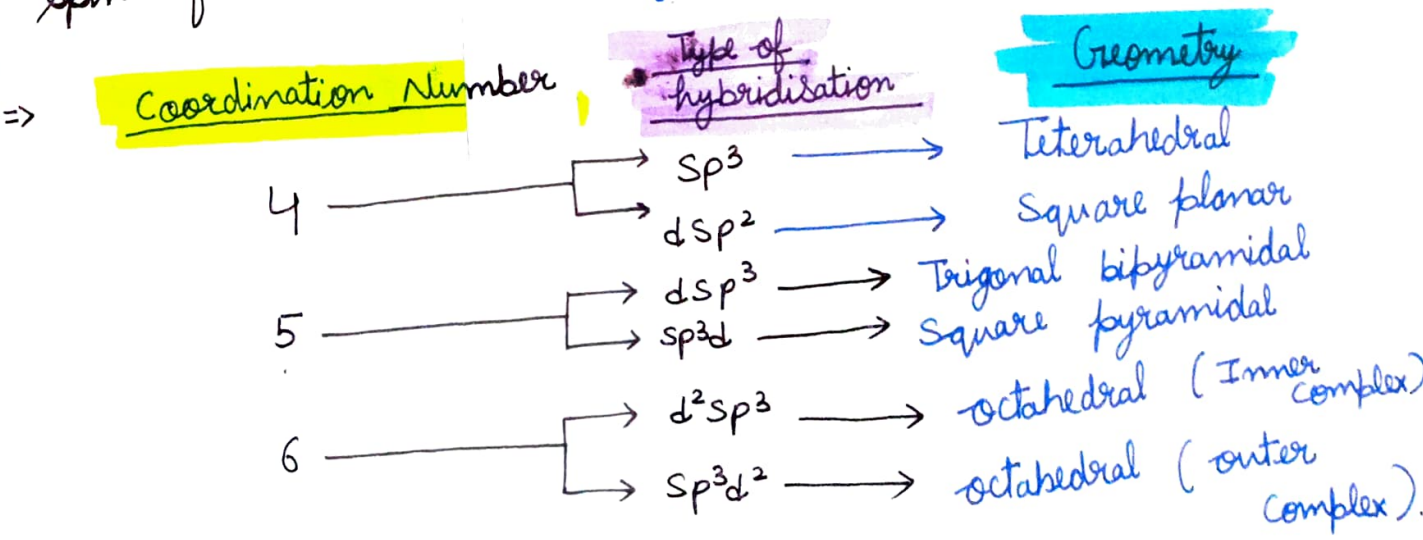 => Coordination Number Type of hybridisation Geometry
4 sp³ Teterahedral
dsp² Square planar
5 dsp³ Trigonal bipyramidal
sp³d Square pyramidal
6 d²sp³ octahedral (Inner complex)
sp³d² octahedral (outer complex).